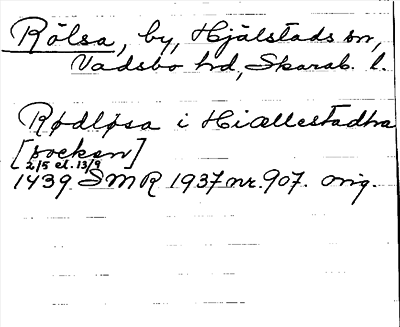 Rölsa, by, Hjälstads sn,
Vadsbo hd, Skarab. l.
Rødløsa i Hiællestadha
[socken]
2/5 el. 13/9
1439 SMR 1937 nr. 907. orig.